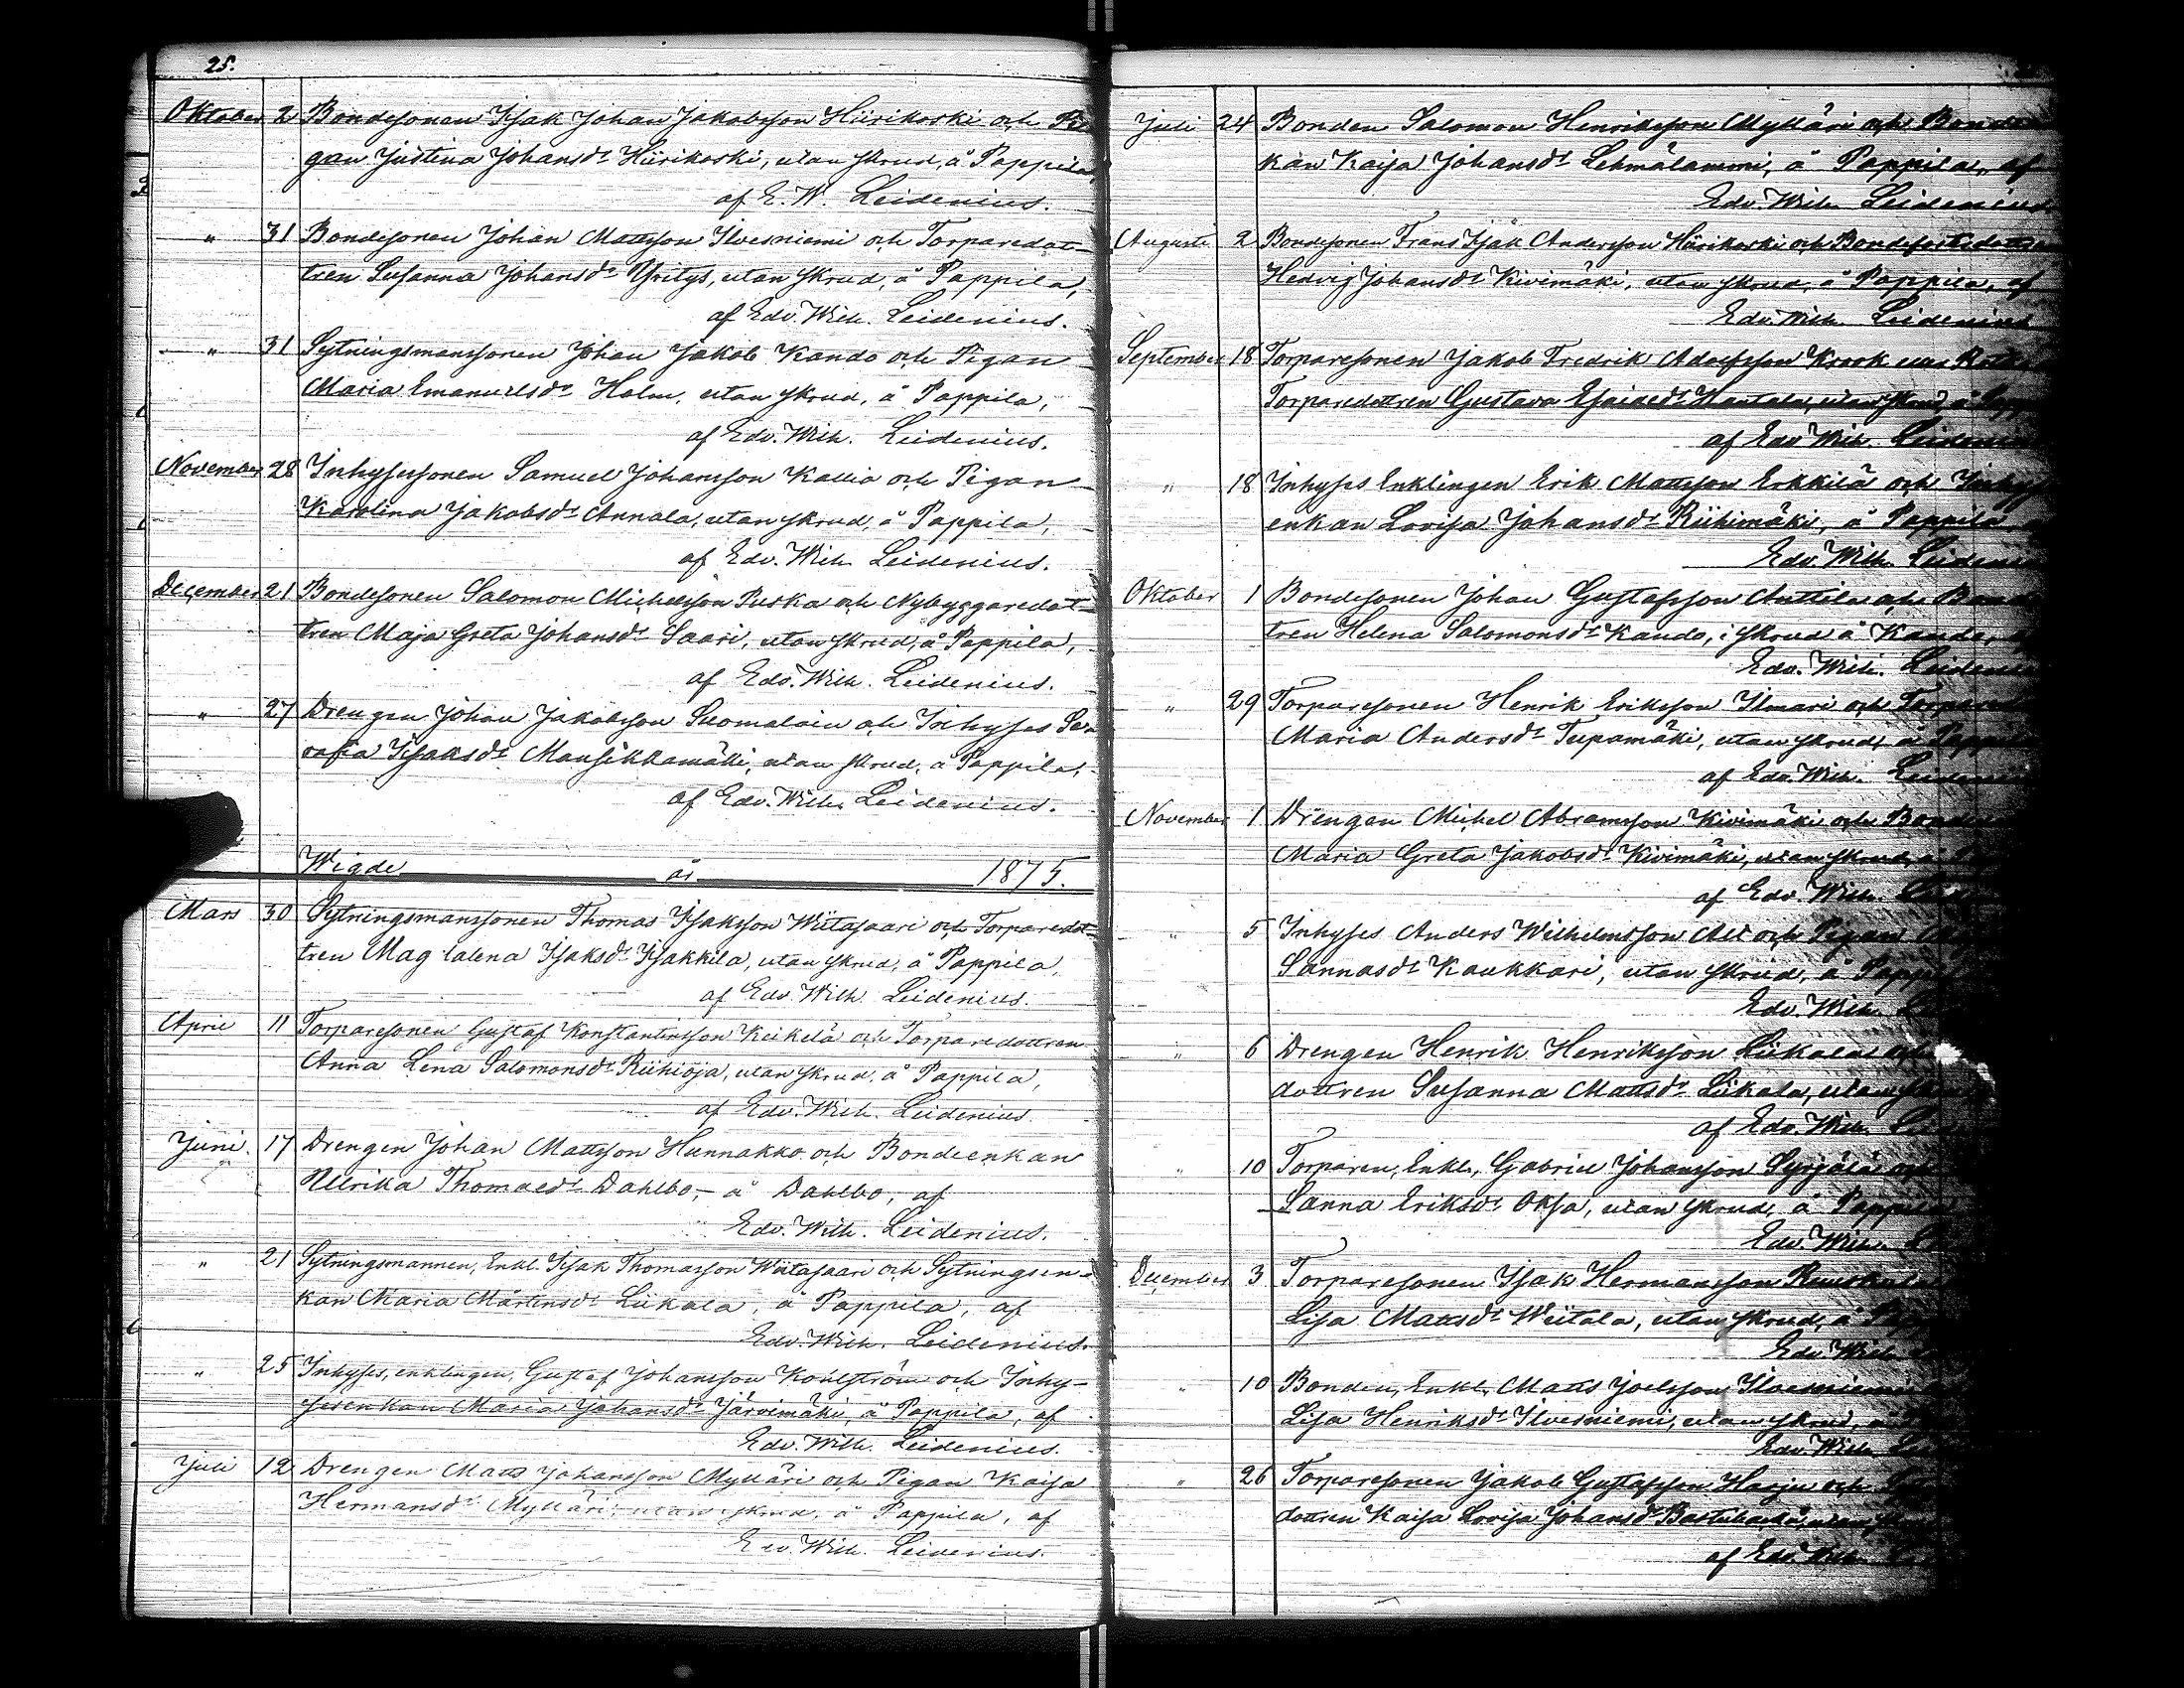 25.
Oktober 2 Bondesonen Isak Johan Jakobsson Hiirikoski och Pi
gan Justina Johansdr Hiirikoski, utan skrud, å Pappila,
af E. W. Leidenius.
" 31 Bondesonen Johan Mattsson Ilvesniemi och Torparedot-
tren Susanna Johansdr Yritys, utan skrud, å Pappila,
af Edv. Wilh. Leidenius.
" 31 Sytningsmanssonen Johan Jakob Kando och Pigan
Maria Emanuelsdr Holm, utan skrud, å Pappila,
af Edv. Wilh. Leidenius.
November 28 Inhysessonen Samuel Johansson Kallio och Pigan
Karolina Jakobsdr Annala, utan skrud, å Pappila,
af Edv. Wilh. Leidenius.
December 21 Bondesonen Salomon Michelsson Puska och Nybyggaredot-
tren Maja Greta Johansdr Saari, utan skrud, å Pappila,
af Edv. Wilh. Leidenius.
" 27 Drengen Johan Jakobsson Suomalain och Inhyses Se-
rafia Isaksdr Mansikkamäki, utan skrud, å Pappila,
af Edv. Wilh. Leidenius.
Wigde år 1875.
Mars 30 Sytningsmanssonen Thomas Isaksson Wiitasaari och Torparedot-
tren Magdalena Isaksdr Isakkila, utan skrud, å Pappila,
af Edv. Wilh. Leidenius.
April 11 Torparesonen Gustaf Konstantinsson Keikelä och Torparedottren
Anna Lena Salomonsdr Riihioja, utan skrud, å Pappila,
af Edv. Wilh. Leidenius.
Juni 17 Drengen Johan Mattsson Hunnakko och Bondeenkan
Ulrika Thomaedr Dahlbo, – å Dahlbo, af
Edv. Wilh. Leidenius.
" 21 Sytningsmannen, Enkl. Isak Thomasson Wiitasaari och Sytningsen-
kan Maria Mårtensdr Liikala, å Pappila, af
Edv. Wilh. Leidenius.
" 25 Inhyses, enklingen, Gustaf Johansson Kohlström och Inhy-
sesenkan Maria Johansdr Järvimäki, å Pappila, af
Edv. Wilh. Leidenius.
Juli 12 Drengen Matts Johansson Mylläri och Pigan Kaisa
Hermansdr Mylläri, utan skrud, å Pappila, af
Edv. Wilh. Leidenius.
Juli 24 Bonden Salomon Henriksson Mylläri och
kan Kaisa Johansdr Lehmälammi, å Pappila, af
Edv. Wilh. Leidenius
Augusti 2 Bondesonen Frans Isak Andersson Hiirikoski och
Hedvig Johansdr Kivimäki, utan skrud, å Pappila, af
Edv. Wilh. Leidenius
September 18 Torparesonen Jakob Fredrik Adolfsson Krook
Torparedottren Gustava Esaiaedr Hantala, utan skrud, å
af Edv. Wilh.
" 18 Inhyses Enklingen Erik Mattsson Erkkilä och
enkan Lovisa Johansdr Riihimäki, å Pappila
Edv. Wilh.
Oktober 1 Bondesonen Johan Gustafsson Anttila och
tren Helena Salomonsdr Kando, i skrud å Kando,
Edv. Wilh.
" 29 Torparesonen Henrik Eriksson Ilmari och
Maria Andersdr Teepamäki, utan skrud, å
af Edv. Wilh.
November 1 Drengen Michel Abramsson Kivimäki och
Maria Greta Jakobsdr Kivimäki, utan skrud, å
af Edv. Wilh.
" 5 Inhyses Anders Wilhelmsson Ali och Pigan
Sannasdr Kaukkari, utan skrud, å
Edv. Wilh.
" 6 Drengen Henrik Henriksson Liikala och
dottren Susanna Mattsdr Liikala, utan
af Edv. Wilh.
" 10 Torparen, Enkl., Gabriel Johansson Syrjälä
Sanna Eriksdr Oksa, utan skrud, å
Edv. Wilh.
December 3 Torparesonen Isak Hermansson
Lisa Mattsdr Wiitala, utan skrud, å
Edv. Wilh.
" 10 Bonden, Enkl., Matts Joelsson Ilvesniemi
Lisa Henriksdr Ilvesniemi, utan skrud,
Edv. Wilh.
" 26 Torparesonen Jakob Gustafsson Harju och
dottren Kaisa Lovisa Johansdr
af Edv. Wilh.